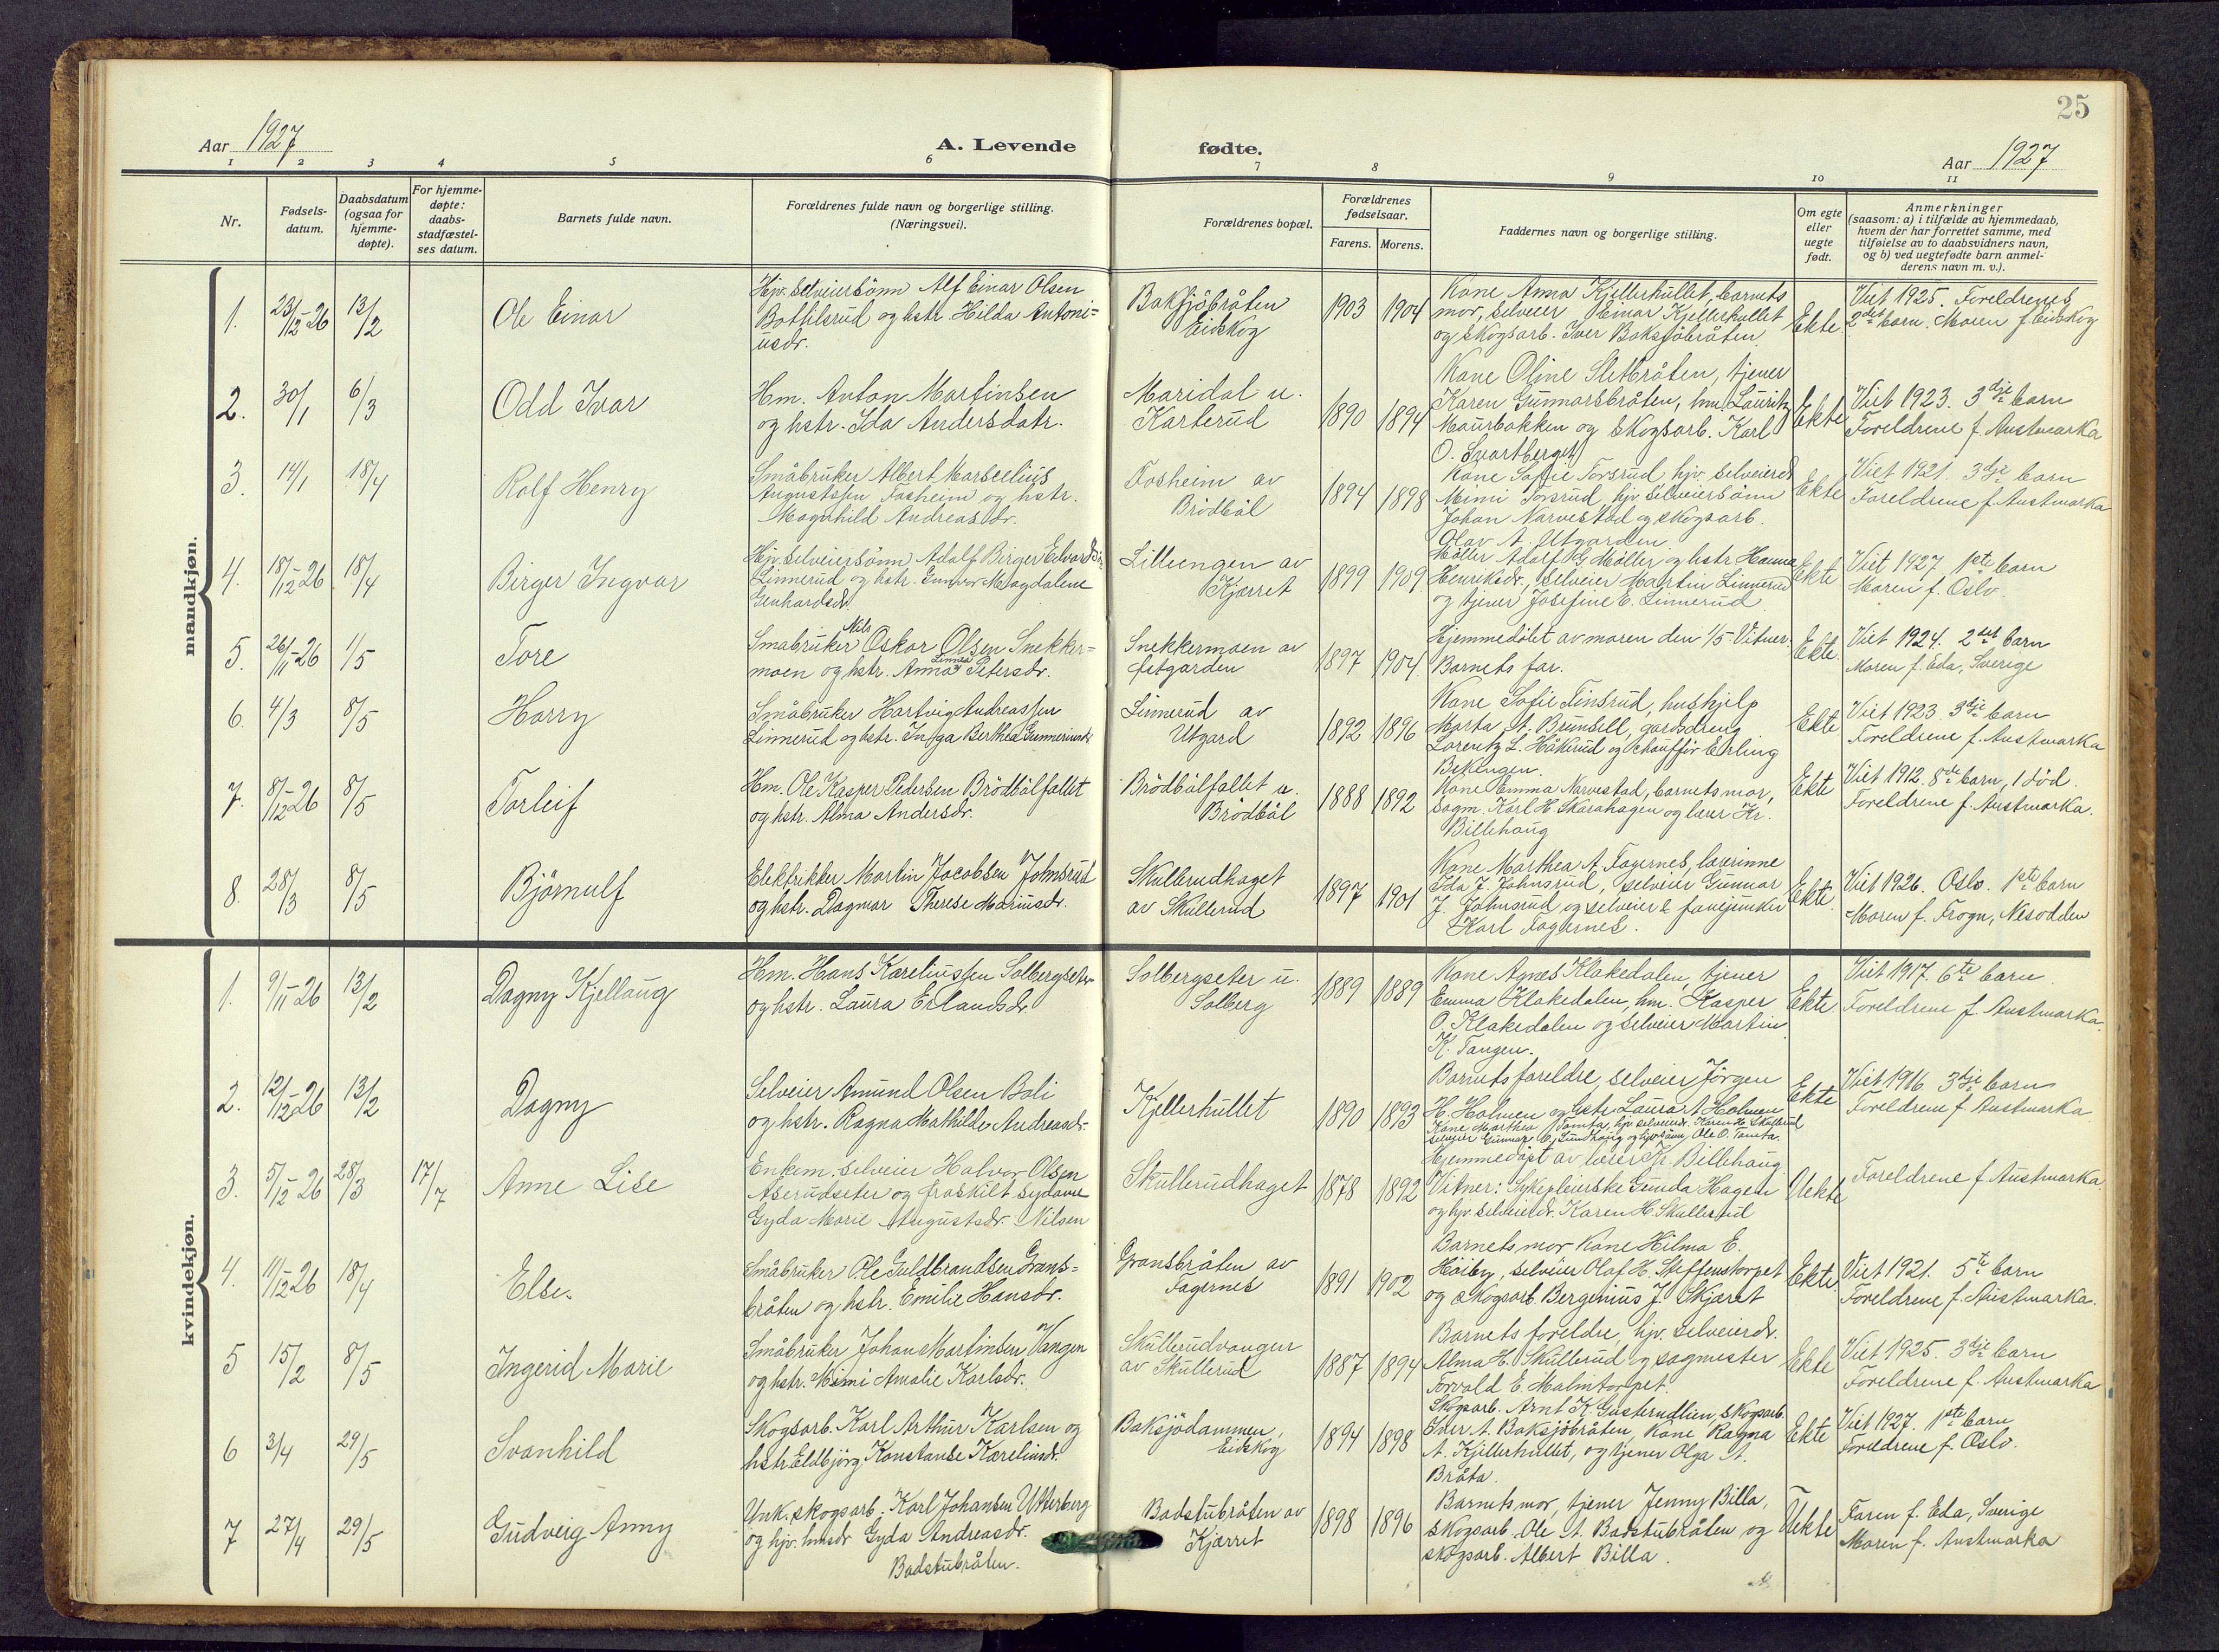 25
Aar 1927
A. Levende
fødte.
Aar 1927
1 2 3 4 5 6 7 8 9 10 11
Nr.
Fødsels-
datum.
Daabsdatum
(ogsaa for
hjemme-
døpte).
For hjemme-
døpte:
daabs-
stadfæstel-
ses datum.
Barnets fulde navn.
Forældrenes fulde navn og borgerlige stilling.
(Næringsvei).
Forældrenes bopæl.
Forældrenes
fødselsaar.
Farens. Morens.
Faddernes navn og borgerlige stilling.
Om egte
eller
uegte
født.
Anmerkninger
(saasom: a) i tilfælde av hjemmedaab,
hvem der har forrettet samme, med
tilføielse av to daabsvidners navn,
og b) ved uegtefødte barn anmel-
derens navn m. v.).
mandkjøn.
1. 23/12-26 13/2
Ole Einar
Hjv. selveiersönn Alf Einar Olsen
Botfilsrud og hstr. Hilda Antoni-
usdr.
Baksjöbråten
Eidskog
1903 1904
Kone Anna Kjellerhullet, barnets
mor, selveier Einar Kjellerhullet
og skogsarb. Iver Baksjöbråten.
Ekte
Viet 1925. Foreldrenes
2det barn. Moren f. Eidskog
2. 30/1 6/3
Odd Ivar
Hm. Anton Martinsen
og hstr. Ida Andersdatr.
Maridal u.
Karterud
1890 1894
Kone Oline Sletbråten, tjener
Karen Gunnarsbråten, hm. Lauritz
Maurbakken og skogsarb. Karl
O. Svartberget
Ekte
Viet 1923. 3dje barn
Foreldrene f. Austmarka
3. 14/1 18/4
Rolf Henry
Småbruker Albert Marselius
Augustssen Fosheim og hstr.
Magnhild Andreasdr.
Fosheim av
Brödböl
1894 1898
Kone Sofie Torsrud, hjv. selveierdr
Mimi Torsrud, hjv selveiersönn
Johan Narvestad og skogsarb.
Olav A. Utgarden.
Ekte
Viet 1921. 3dje barn
Foreldrene f. Austmarka
4. 18/12-26 18/4
Birger Ingvar
Hjv. selveiersönn Adolf Birger
Linnerud og hstr. Gunvor Magdalene
Genhardsdr.
Lilluengen av
Kjærret
1899 1909
Möller Adolf G. Möller og hstr Hanna
Henriksdr., selveier Martin Linnerud
og tjener Josefine E. Linnerud
Ekte
Viet 1927 1ste barn
Moren f. Oslo.
5. 26/11-26 1/5
Tore
Nils
Småbruker Oskar Olsen Snekker-
Linnea
moen og hstr. Anna Petersdr.
Snekkermoen av
Utgarden
1897 1904.
Hjemmedöbt av moren den 1/5 Vitner:
Barnets far.
Ekte.
Viet 1924. 2det barn
Moren f. Eda, Sverige
6. 4/3 8/5
Harry
Småbruker Hartvig Andreassen
Linnerud og hstr. Inga Berthea Gunneriusdr
Linnerud av
Utgard
1892 1896
Kone Sofie Finsrud, hushjelp
Marta A. Brunsell, gardsdreng
Lorentz L. Håkerud og chaufför Erling
Bekengen.
Ekte
Viet 1923. 3dje barn
Foreldrene f. Austmarka
7. 8/12-26 8/5
Torleif
Hm. Ole Kasper Pedersen Brödbölfallet
og hstr. Alma Andersdr.
Brödbölfallet u.
Brödböl
1888 1892
Kone Emma Narvestad, barnets mor,
sagm. Karl H Skarahagen og lærer Kr.
Billehaug
Ekte
Viet 1912. 8de barn, 1 död.
Foreldrene f. Austmarka.
8. 28/3 8/5
Björnulf
Elektrikker Martin Jacobsen Johnsrud
og hstr. Dagmar Therese Mariusdr.
Skullerudhaget
av Skullerud
1897 1901
Kone Marthea A. Fagernes, lærerinne
Ida J. Johnsrud, selveier Gunnar
J. Johnsrud og selveier & fanejunker
Karl Fagernes.
Ekte
Viet 1926. Oslo. 1ste barn
Moren f. Frogn, Nesodden
kvindekjøn.
1. 9/11-26 13/2
Dagny Kjellaug
Hm. Hans Kareliussen Solbergseter
og hstr. Laura Erlandsdr.
Solbergseter u.
Solberg
1889 1889
Kone Agnes Klakedalen, tjener
Emma Klakedalen, hm. Kasper
O. Klakedalen og selveier Martin
K. Tangen.
Ekte
Viet 1917. 6te barn.
Foreldrene f. Austmarka.
2. 12/12-26 13/2
Dagny
Selveier Amund Olsen Boli
og hstr. Ragna Mathilde Andreasdr.
Kjellerhullet
1890 1893
Barnets foreldre, selveier Jörgen
H. Holmen og hstr. Laura A Holmen
Kone Marthea Tomta, hjv. selveierdr. Karen H. Skullerud
selveier Gunnar O. Sundhaug og hjv. sönn, Ole O. Tomta.
Ekte
Viet 1916. 3dje barn
Foreldrene f. Austmarka
3. 5/12-26 28/3 17/7
Anne Lise
Enkem. selveier Halvor Olsen
Åserudseter og fraskilt sydame
Gyda Marie Augustsdr. Nilsen
Skullerudhaget
1878 1892
Hjemmedöpt av lærer Kr. Billehaug
Vitner: Sykepleierske Gunda Hagen
og hjv. selveierdr. Karen H. Skullerud
Uekte
Foreldrene f Austmarka.
4. 11/12-26 18/4
Else.
Småbruker Ole Guldbrandsen Grans-
bråten og hstr. Emilie Hansdr.
Gransbråten av
Fagernes
1891 1902
Barnets mor, Kone Hilma E.
Höiby, selveier Olaf H. Steffenstorpet
og skogsarb. Bergenius J. Skjæret
Ekte.
Viet 1921. 5te barn
Foreldrene f. Austmarka.
5 15/2 8/5
Ingerid Marie
Småbruker Johan Martinsen Vangen
og hstr. Mimi Amalie Karlsdr.
Skullerudvangen
av Skullerud
1887 1894
Barnets foreldre, hjv. selveierdr.
Alma H. Skullerud og sagmester
Torvald E. Malmtorpet.
Ekte
Viet 1925. 3dje barn
Foreldrene f. Austmarka
6 3/4 29/5
Svanhild
Skogsarb. Karl Arthur Karlsen og
hstr. Eldbjörg Konstanse Kareliusdr.
Baksjödammen,
Eidskog
1894 1898
Skogsarb. Arnt K. Gusterudlien, skogsarb.
Iver A. Baksjöbråten, Kone Ragna
A. Kjellerhullet, og tjener Olga A.
Bråta.
Ekte
Viet 1927. 1ste barn
Foreldrene f. Oslo.
7 27/4 29/5
Gudveig Anny
Unk. skogsarb. Karl Johansen Utterberg
og hjv. hmsdr Gyda Andreasdr.
Badstubråten.
Badstubråten av
Kjærret
1898 1896
Barnets mor, tjener Jenny Billa,
skogsarb. Ole A. Badstubråten og
skogsarb. Albert Billa.
Uekte
Faren f. Eda, Sverige
Moren f. Austmarka